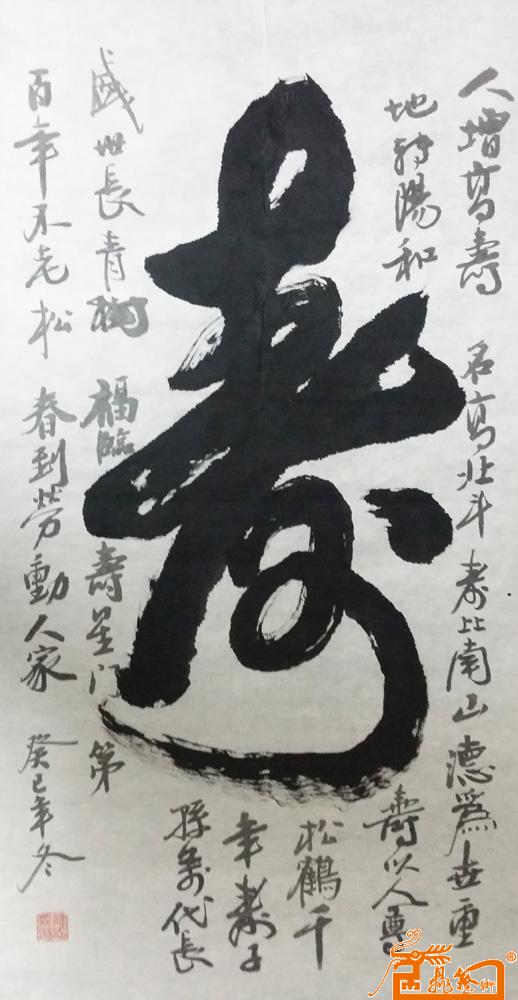 壽
人增高壽 名高北斗 寿比南山 德爲世重
地轉陽和 壽以人尊
松鶴千
年壽子
孫萬代長
盛世長青樹 福臨壽星门第
百年不老松 春到勞動人家 癸巳年冬